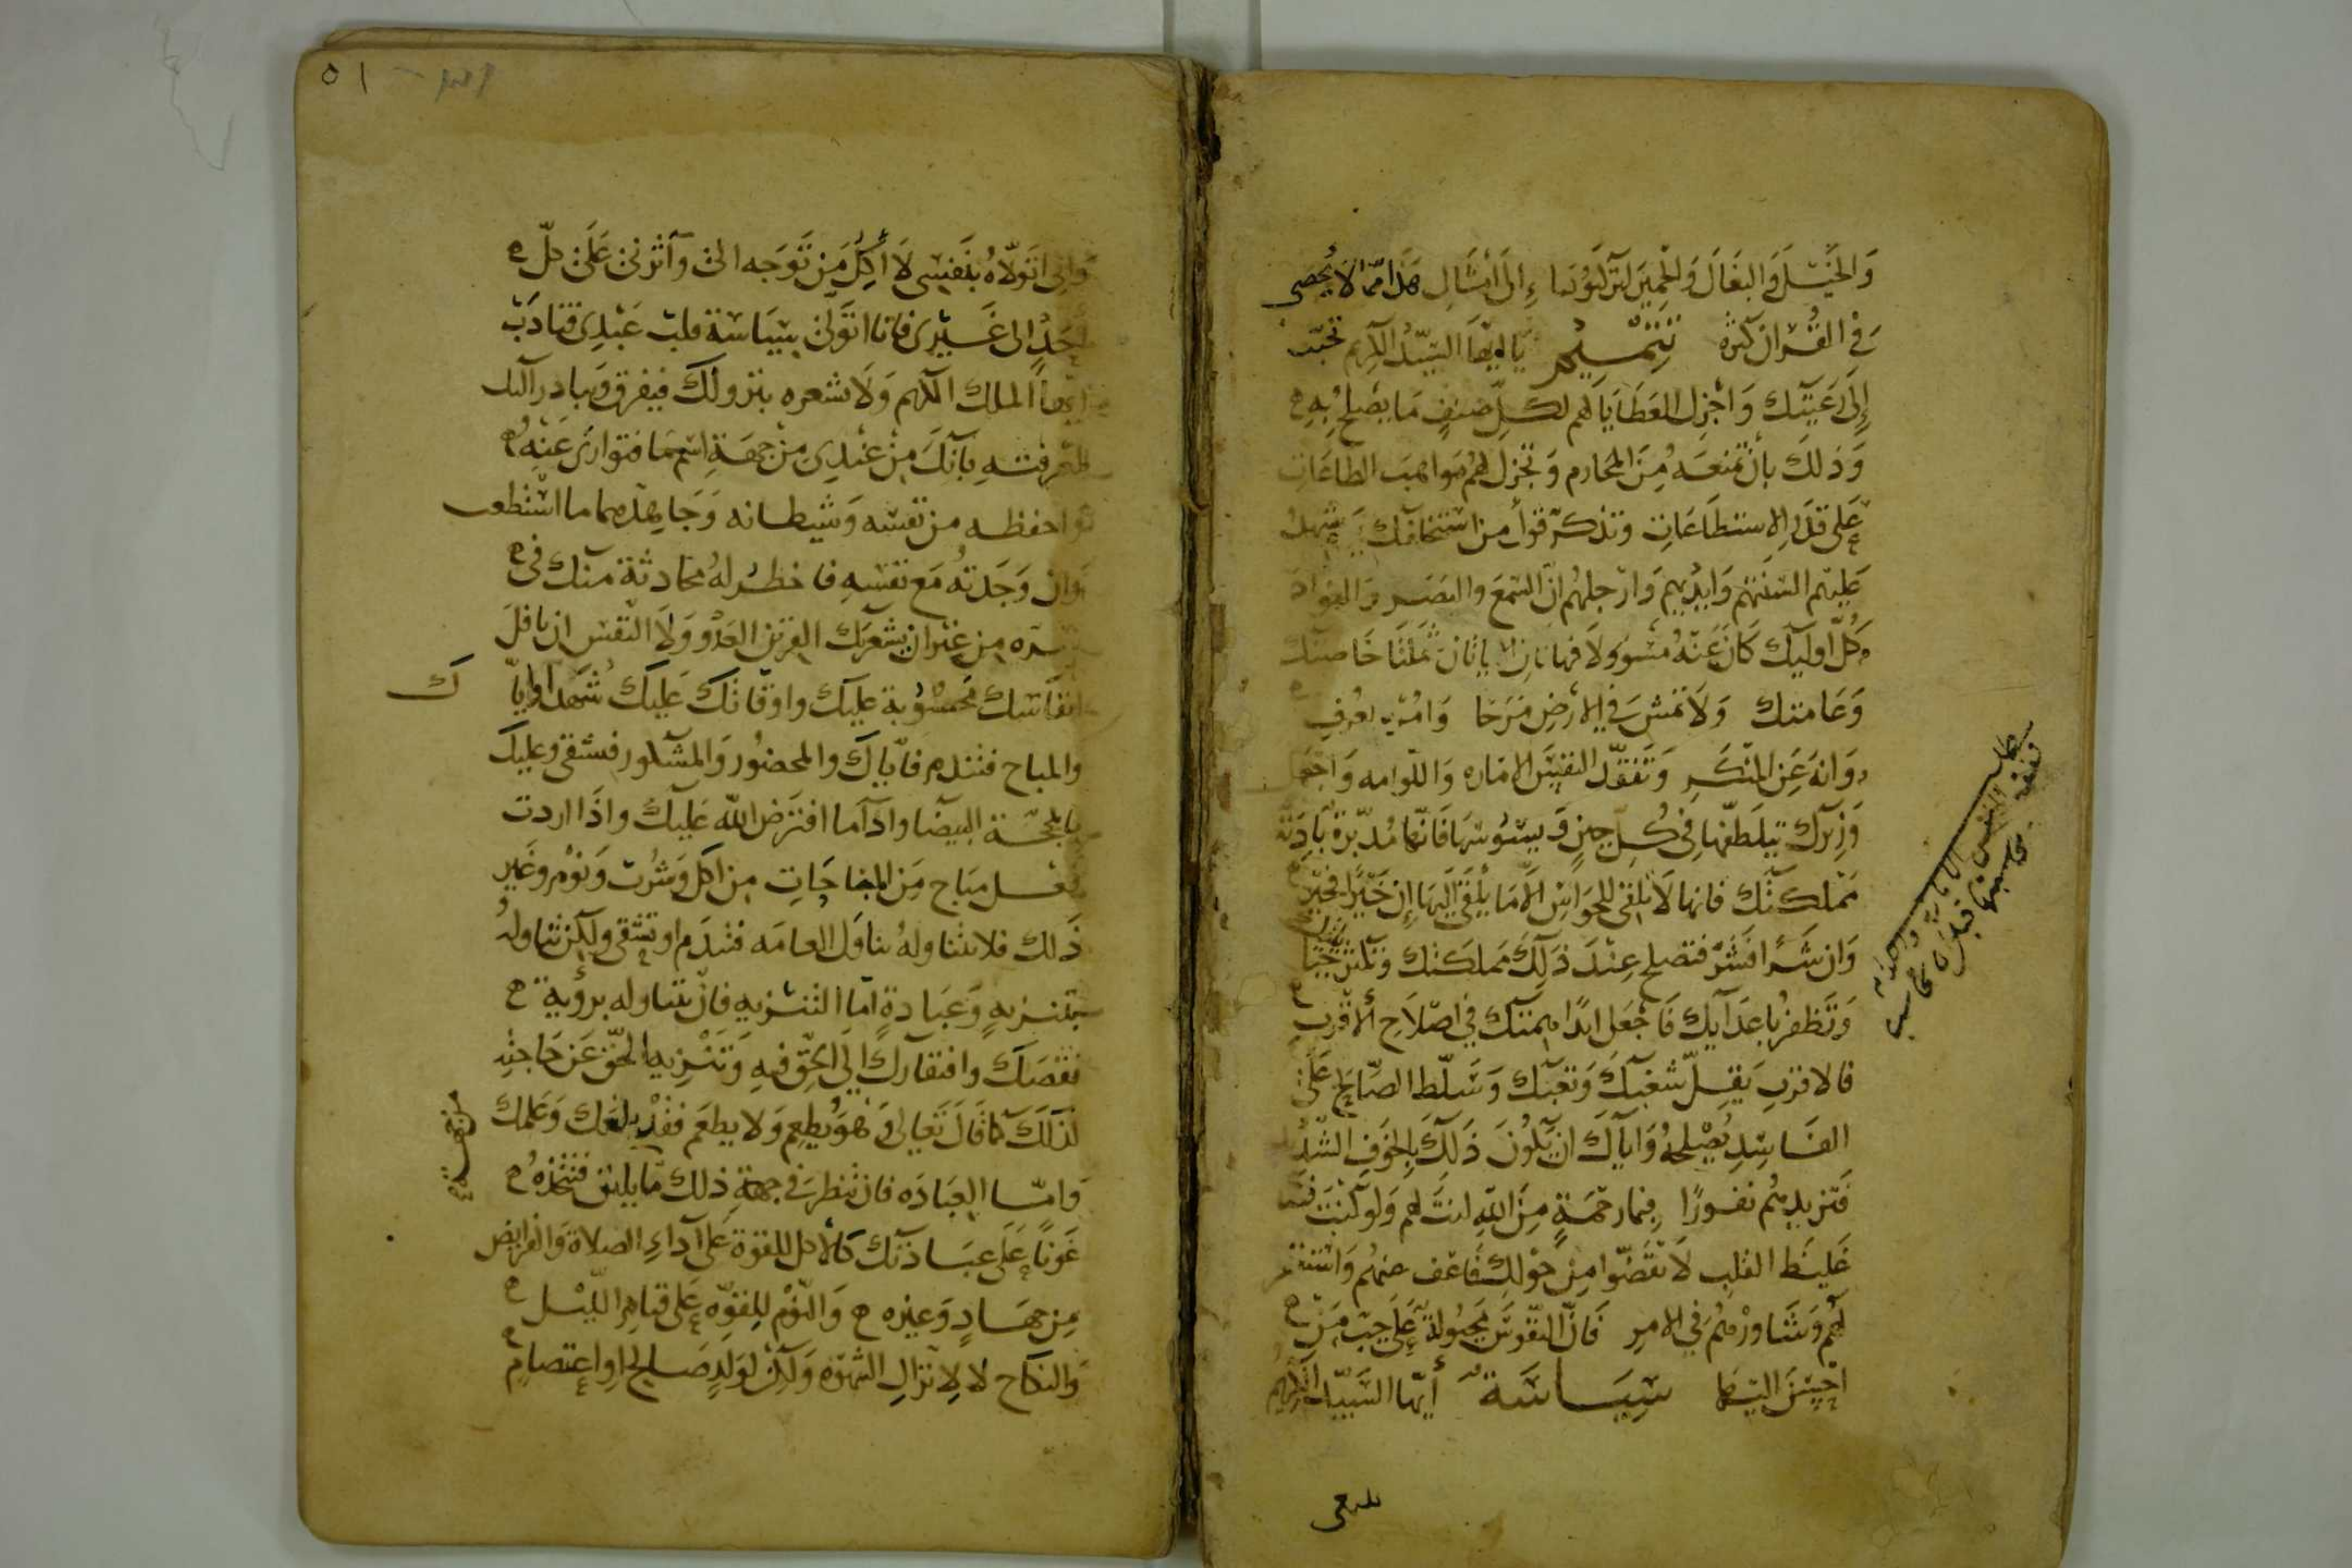 وَالخَيْلَ وَالبِغَالَ وَالحَمِيرَ لتَركَبُوهَا إِلَى أَمثَالِ هَذَا مّما لاَ يُحْصَى
فِي القُرْآنِ كَثرةً تتمـيم يَا أيهَا السَيّدُ الكَريم تحبّب
إِلَى رَعيَّتِكَ وَاجْزل العَطَايَا لهم لكلِّ صِنفٍ مَا يَصْلحُ بِهِ
وَذلكَ بأن تمنعَهُ مِنَ المَحَارم وَتجزل لهُم مَوَاهبَ الطاعَاتِ
عَلى قَدَرِ الاستطَاعَاتِ وتذكّر قوله من استخلفك يوم تشهدُ
عَليْهم ألسنَتهُم وَأيْدِيهم وَأرْجلهُم انّ السَمعَ وَالبَصَرَ وَالفوَادَ
كُلُّ اوليك كَانَ عَنْهُ مَسْوولاَ فهاتان الايَاتَان شملَتَا خَاصتك
وَعَامتك وَلاَ تمش في الأرضِ مَرَحَا وَامُرْ بالعُرفِ
وَانْهَ عَنِ المنْكَرِ وَتفَقّد النفسَ الامّاره وَاللّوامه وَاجْعَل
وَزيرَك يتلَطّفهَا في كُلِّ حِينٍ وَيسُوسَهَا فَانّهَا مُدَبّرة بَادِيَة
مَملكَتك فانهَا لاَ تلقى للحَوَاسّ إلاّ مَا يُلقَى إليْهَا إِن خَيْرًا فخَيْر
وَان شَرًّا فَشَرّ فتصلح عِنْدَ ذَلِكَ مَملَكَتك وَتلتذ بحيَاتك
وَتَظفرُ بأعدَايك فَاجْعَل ابدًا همّتك في اصْلاَح الأقرَبِ
فالاقرَبِ يَقلّ شغَبكَ وَتَعَبك وَسَلّط الصّالح عَلَى
الفَاسِدِ يُصْلحهُ وَايّاكَ ان يَكُونَ ذَلكَ بِالخَوفِ الشّدِيد
فَتزيدهُم نفورًا فبمَا رَحْمَةٍ مِنَ اللهِ لنتَ لهم وَلو كنتَ فظًا
غَليظ القَلبِ لاَنفَضّوا مِن حَوْلكَ فَاعْف عنهُم وَاسْتَغفر
لَهُم وَشَاورْهُم في الامرِ فَانّ النّفُوسَ مجبُولَةٌ عَلَى حُبّ مَن
احْسَنَ اليهَا سِيَاسَة أيّهَا السَيّد الكريم
محاسبة النفس الامارة واللوامه
ونفسه محاسبها قبل ان تحاسب
بلغ
٥١
وَانى اتوَلاّهُ بنَفسِي لاَ أكِلُ مَن تَوَجه الىّ وَآثرنى عَلَى كلّ
احَدٍ الى غَيْرى فانَا اتوَلى سِيَاسَة قلبِ عَبْدِى فتادّب
ايّهَا الملك الكريم وَلاَ تشعره بنزولك فيفرق وَيبادر اليك
لمَعْرفتهِ بأنّكَ مِنْ عنْدِى مِن جهَة اسْم مَا فتوارَى عَنْهُ
واحفظه من نفسِه وَشيطانه وَجَاهدهما ما استطعت
وَان وَجَدتهُ مَع نفسِهِ فاخطر لهُ محادثة منك في
سرّه مِن غير ان يشعر بك القرين العَدُو وَلاَ النّفس ان
انفَاسك محسُوبة عليك واوقاتك عَليك شهدا وايّاك
وَالمباح فتندم فايّاك والمحضُور وَالمشكور فتشقى وعليك
بالمحجّة البيضَا وادآ مَا افترَض الله عَليكَ واذَا اردت
فعل مبَاح مِن المبَاحَاتِ مِن اكل وَشرب وَنوم وغيْر
ذَلك فلاَ تتنَاولهُ تناوَل العامّه فتندَم او تشقَى ولكن تناولهُ
بتنزيهٍ وَعبَادةٍ امّا التنزيه فان تتناوله برؤية
نقصك وَافتقارك إلى الحَق فيهِ وَتنزيه الحَقّ عَن حَاجته
لذَلكَ كَمَا قَالَ تَعَالى وَهوَ يُطعِم وَلا يطعَم
وَامّا العِبَادَه فان تنظر في جهَةِ ذلك مّا يليق فتتخذهُ
عَونًا عَلَى عبَادَتك كَالأكل للقوّة عَلى اَداءِ الصَلاة وَالفرايض
مِن جهَادٍ وَغيره وَالنّوم للقوّه عَلى قيامِ الليْل
وَالنكاح لا لانزالِ الشهوَه وَلكِن لوَلدٍ صَالحٍ او اعتصامِ